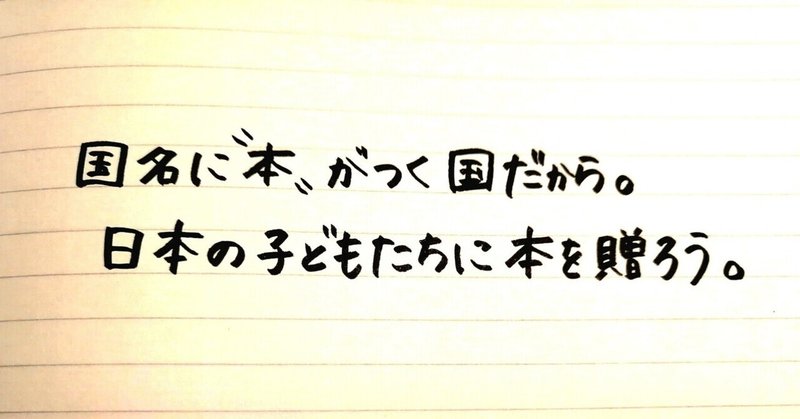 国名に〝本〟がつく国だから。
日本の子どもたちに本を贈ろう。